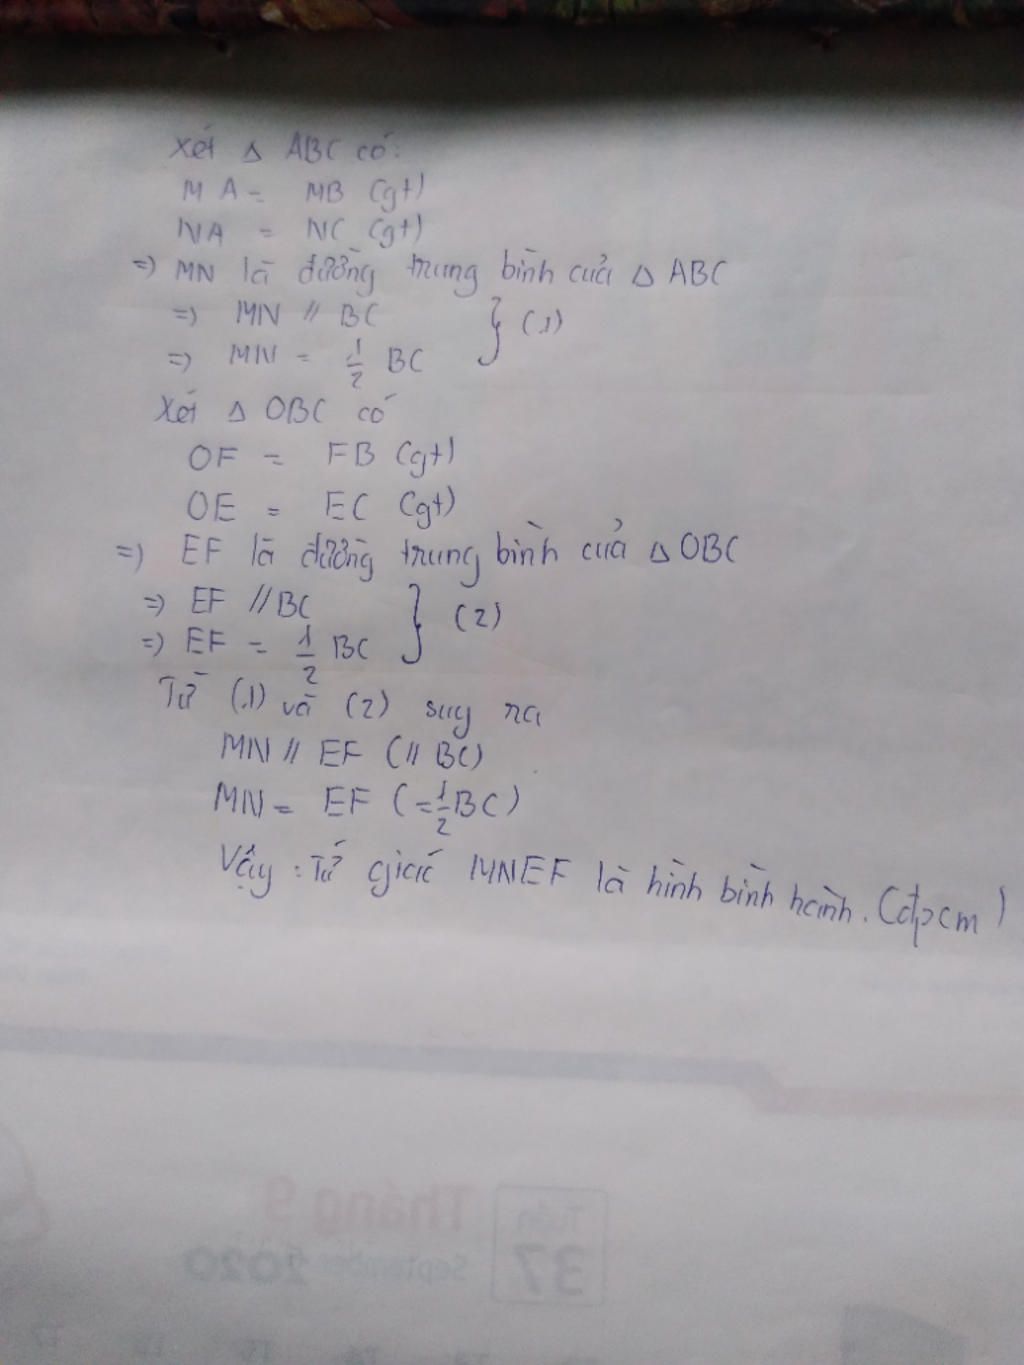 Xét Δ ABC có:
MA = MB (gt)
NA = NC (gt)
=) MN là đường trung bình của Δ ABC
=) MN // BC } (1)
=) MN = 1/2 BC
Xét Δ OBC có
OF = FB (gt)
OE = EC (gt)
=) EF là đường trung bình của Δ OBC
=) EF // BC } (2)
=) EF = 1/2 BC
Từ (1) và (2) suy ra
MN // EF (// BC)
MN = EF (= 1/2 BC)
Vậy: Tứ giác MNEF là hình bình hành. (đpcm)
Tháng 9 Tuần
September 2020 37